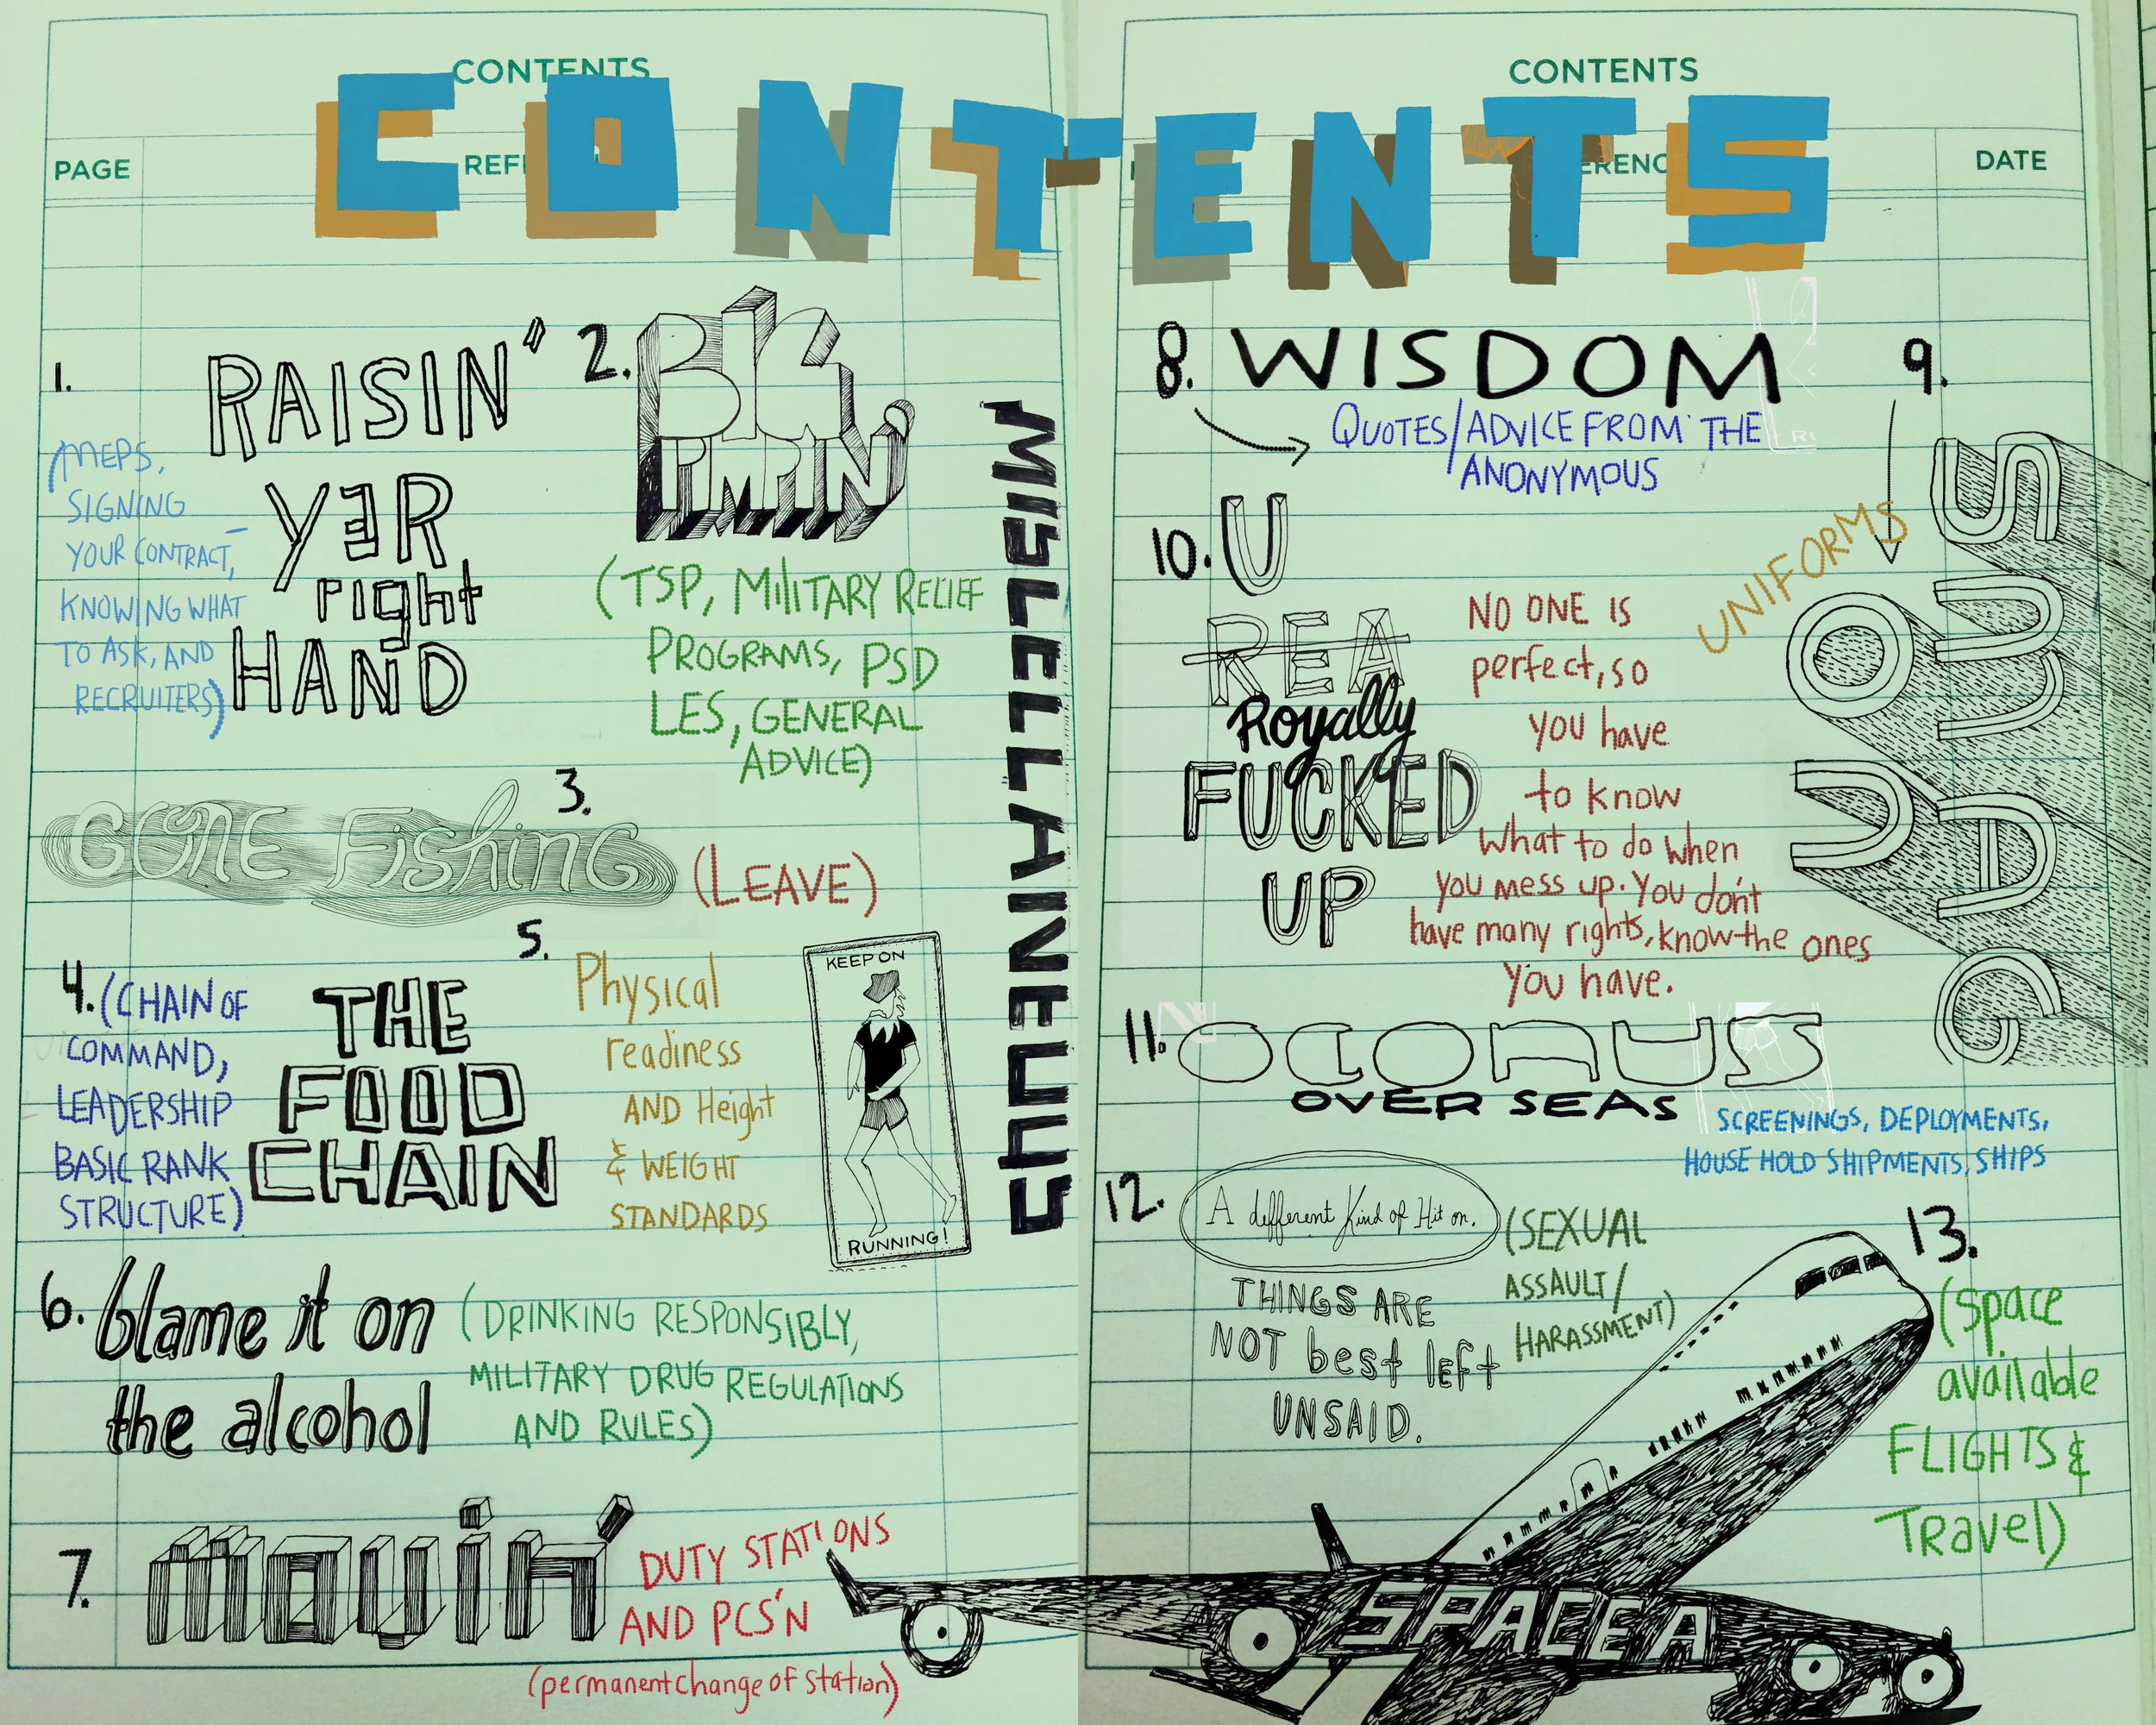 CONTENTS
CONTENTS
CONTENTS
PAGE
DATE
1.
RAISIN'
YER
right
HAND
(MEPS,
SIGNING
YOUR CONTRACT,
KNOWING WHAT
TO ASK, AND
RECRUITERS)
2.
BIG
PIMPIN'
(TSP, MILITARY RELIEF
PROGRAMS, PSD
LES, GENERAL
ADVICE)
3.
GONE Fishing
(LEAVE)
4.
(CHAIN OF
COMMAND,
LEADERSHIP
BASIC RANK
STRUCTURE)
THE
FOOD
CHAIN
5.
Physical
readiness
AND Height
& WEIGHT
STANDARDS
KEEP ON
RUNNING!
6.
blame it on
the alcohol
(DRINKING RESPONSIBLY,
MILITARY DRUG REGULATIONS
AND RULES)
7.
movin'
DUTY STATIONS
AND PCS'N
(permanent change of station)
MISCELLANEUYS
8.
WISDOM
QUOTES/ADVICE FROM THE
ANONYMOUS
9.
UNIFORMS
SMAG
OJ
10.
U
REA
Royally
FUCKED
UP
NO ONE IS
perfect, so
you have
to know
What to do when
you mess up. You don't
have many rights, know the ones
you have.
11.
OCONUS
OVER SEAS
SCREENINGS, DEPLOYMENTS,
HOUSE HOLD SHIPMENTS, SHIPS
12.
A different Kind of Hit on.
(SEXUAL
ASSAULT/
HARASSMENT)
THINGS ARE
NOT best left
UNSAID.
13.
(space
available
FLIGHTS &
Travel)
SPACE A